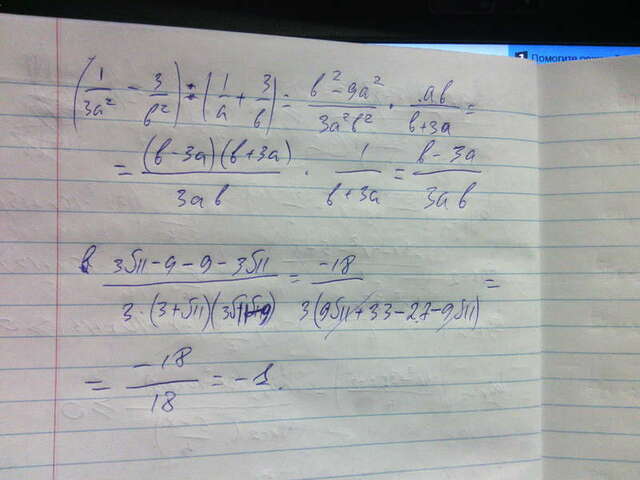 Помогите
(1/3a² - 3/b²) : (1/a + 3/b) = (b² - 9a²)/(3a²b²) · ab/(b+3a) =
= (b-3a)(b+3a)/(3ab) · 1/(b+3a) = (b-3a)/(3ab)
(3√11 - 9 - 9 - 3√11)/(3·(3+√11)(3√11-9)) = -18/(3(9√11+33-27-9√11)) =
= -18/18 = -1.